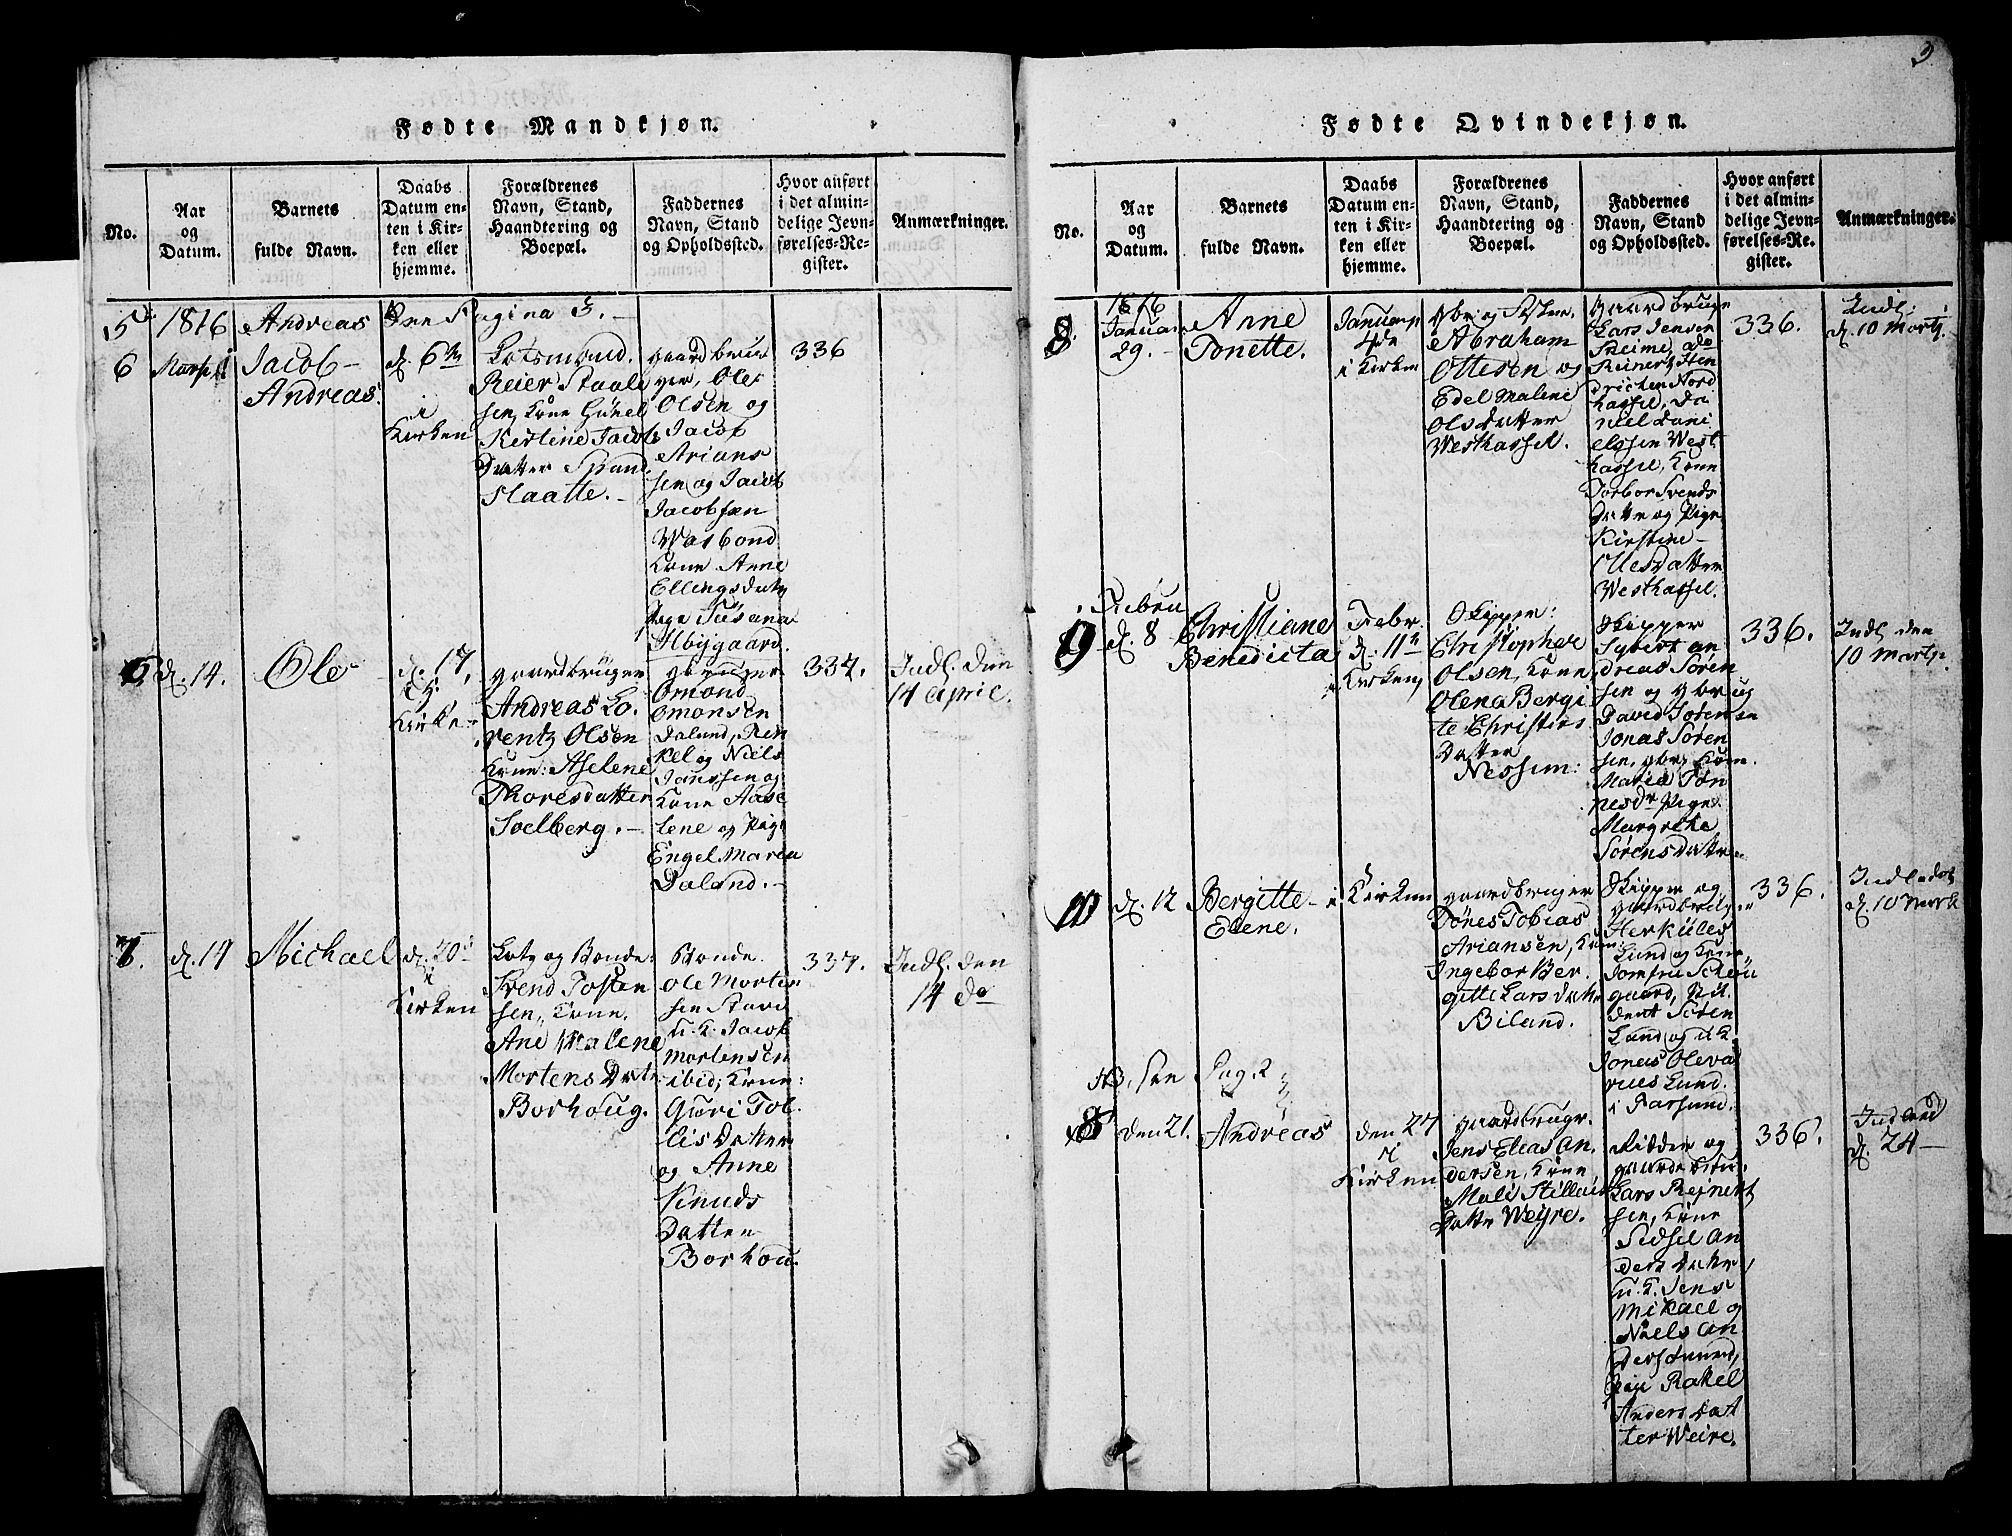 3
Fødte Mandkjøn.
No.
Aar
og
Datum.
Barnets
fulde Navn.
Daabs
Datum en-
ten i Kir-
ken eller
hjemme.
Forældrenes
Navn, Stand,
Haandtering og
Boepæl.
Faddernes
Navn, Stand
og Opholdssted.
Hvor anført
i det almin-
delige Jevn-
førelses-Re-
gister.
Anmærkninger.
5
1816
Andreas
Pagina 3.
6
Jacob-
Andreas.
d. 6te
i
Kirken
Lotsmand
Reier Staale
sen, Kone Gunel
Kirstine Jacobs
Datter Spand
Slaatte.
gaardbru
ger, Ole
Olsen og
Jacob
Arians
sen og Jacob
Jacobsen
Wasbond
Kone Anne
Ellingsdatr
Pige Susana
Høygaard.
336
6
d. 14.
Ole
d. 17,
Kirke
gaardbruger
Andreas Lo-
rentz Olsen
Kone: Aselene
Thoresdatter
Soelberg.
Omond
Omonsen
Daland, Ren
kel og Niels
Janssen og
Kone Aase
lene og Pige
Engel Maria
Daland.
337.
Indl. den
14 April.
7.
d. 14
Michael
d. 20
i
Kirken
Lots og Bonde:
Svend Tosten
sen, Kone.
Ane Malene
Mortens Datr
Borhoug.
Bonde
Ole Morten
sen Stave
u. k: Jacob
Mortensen
ibid; Kone:
Guri Tol
lisdatter
og Anne
Knuds
Datter
Borhou.
337.
Indl. den
14 do
Fødte Qvindekjøn.
No.
Aar
og
Datum.
Barnets
fulde Navn.
Daabs
Datum en-
ten i Kir-
ken eller
hjemme.
Forældrenes
Navn, Stand,
Haandtering og
Boepæl.
Faddernes
Navn, Stand
og Opholdssted.
Hvor anført
i det almin-
delige Jevn-
førelses-Re-
gister.
Anmærkninger.
8.
1816
Januar
29.
Anne
Tonette.
Januar
4de
i Kirken
Abraham
Ottesen og
Edel Malene
Olsdatter
Westhassel.
gaardbruger
Lars Jensen
Skeime, do
Reinert Hen
drichsen Nord
hassel, Da
niel Dani
elssen West
hassel, Kone
Torbor Svends
Datter og Pige
Kirstine
Olesdatter
Westhassel.
336.
Indl.
d. 10 Martz.
9
Februar
d. 8
Christiane
Benedicta
Febr.
d. 11te
i Kirken
Skipper:
Christopher
Olsen, Kone
Olena Bergi
te Christies
Datter
Nessum:
Skipper
Sybert An
dreas Søren
sen og gbrug
David Sørensen
Jonas Søren
sen, gbr, Kone
Maria Tøn
nesdr Pige
Margrethe
Sørensdatter
336.
Indl. den
10 Martz.
10
d. 12
Bergitte
Elene.
i Kirken
gaardbruger
Tønes Tobias
Ariansen, Kone:
Ingebor Ber
gitte Lars datr
Biland.
Skipper og
gaardbruger
Herkules
Lund og Kone,
Jomfru Scheu
gaard, Stu
dent Søren
Lund og u. k.
Jonas Oleva
rius Lund.
i Farsund.
336.
Indl. dat
d. 10 Mart
NB, see Pag. 2
8
den 21.
Andreas
den 27
i
Kirken
gaardbrugr.
Jens Elias An-
dersen, Kone
Mali Stillau
Datter Weyre.
Ridder og
gaardbru-
Lars Reinert
sen, Kone
Sidsel An
ders datter
u. k. Jens
Mikael og
Niels An
Pige Rakel
Anders dat
ter Weire.
336.
Indl.
d. 24